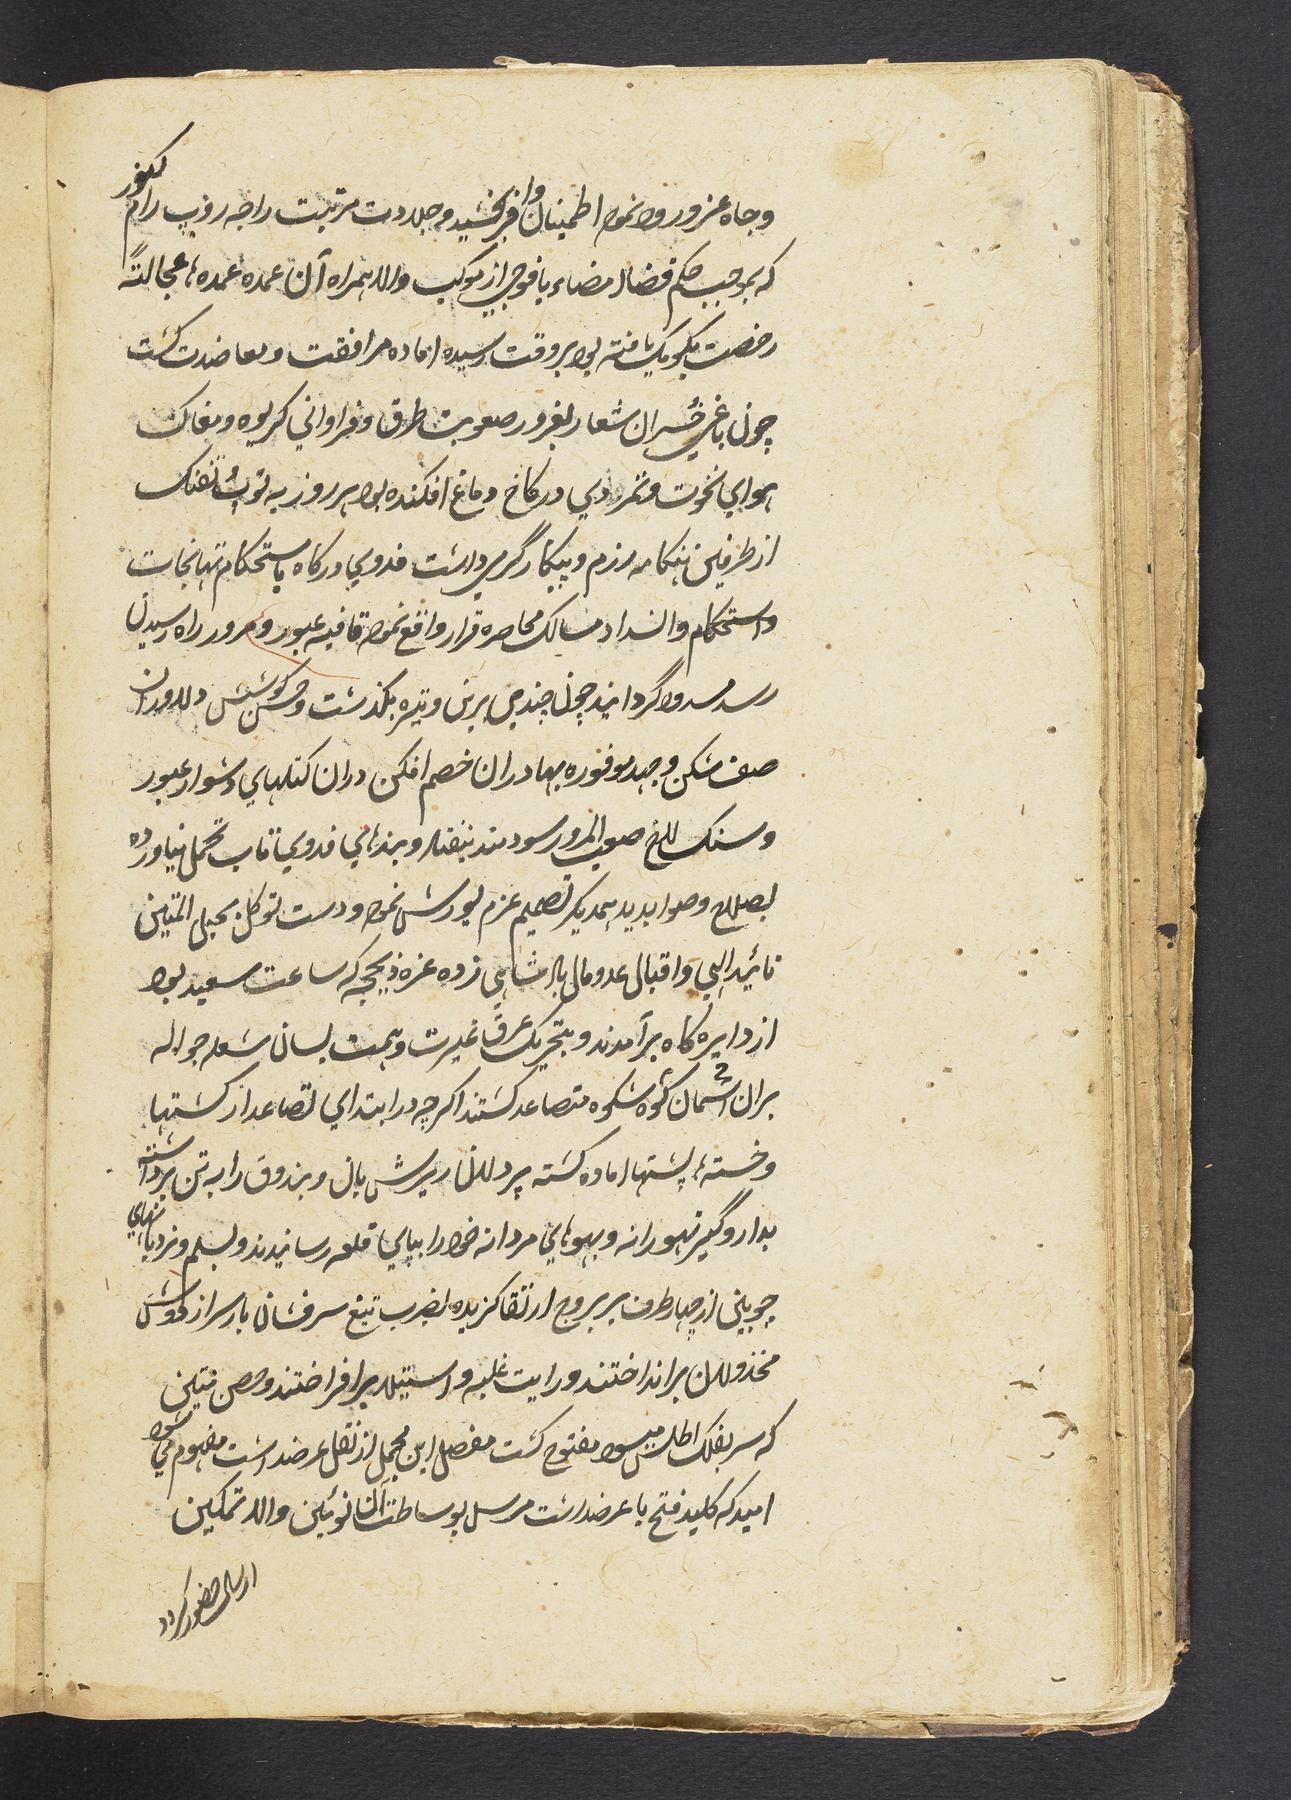 وجاه عزور ولا نموه اطمینان وافر بخشید و جلادت مرتبت راجه روپ رام کهور
که بموجب حکم قضا امضاء با فوجی از موکب والا همراه آن عمده عمده‌ها عجالتةً
رخصت بکومک یافته بود بروقت رسیده اماده مرافقت و معاضدت گشت
چون باغی خسران شعار بغرور صعوبت طرق و فراوانی کریوه و مغاک
هوای نخوت و تمردی در کاخ دماغ افکنده بود هر روز به توپ و تفنک
از طرفین هنکامه رزم و پیکار گرمی داشت فدوی درکاه باستحکام تهانجات
واستحکام وانسداد مسالک محاصره قرار واقع نموه قافیه عبور و مرور راه رسیدن
رسد مسدود گردانید چون چندی برین وتیره بگذشت وحسن کوشش دلاوران
صف شکن وجهد موفوره بهادران خصم افکن دران کتلهای دشوار عبور
وسنک لاخ صعب المرور سودمند نیفتاد و بندهای فدوی تاب تحمل نیاورده
بصلاح وصوابدید همدیکر تصمیم عزم یورش نموه و دست توکل بحبل المتین
تائید الهی و اقبال عدومال بادشاهی زده غره ذیحجه که ساعت سعید بود
از دایره کاه برآمدند و بتحریک عرق غیرت وهمت بسان شعله جواله
بران اسمان کوه شکوه متصاعد کشتند اکرچه در ابتدای تصاعد از کشتها
وخسته‌ها پشتها اماده کشته پر دلان ریزش بان و بندوق را به تن برداشته
بدار و گیر تهورانه و بهوهای مردانه خود را بپای قلعه رسانیدند و بسلم و نردبانهای
چوبین از چهار طرف بر بروج ارتقا کزیده بضرب تیغ سرفشان بار سر از دوش
مخذولان برانداختند و رایت غلبه و استیلا برافراختند وحصن متین
که سر بفلک اطلس میسود مفتوح کشت مفصل این مجمل از نقل عرضداشت مفهوم می شود
امید که کلید فتح با عرضداشت مرسل بوساطت آن نوئین والا تمکین
ارسال حضور کردد